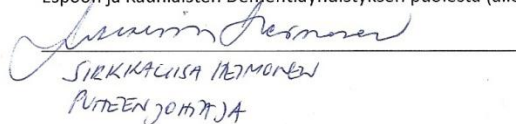 Espoon ja Kauniaisten Dementiayhdistyksen puolesta
SIRKKALIISA HEIMONEN
PUHEENJOHTAJA